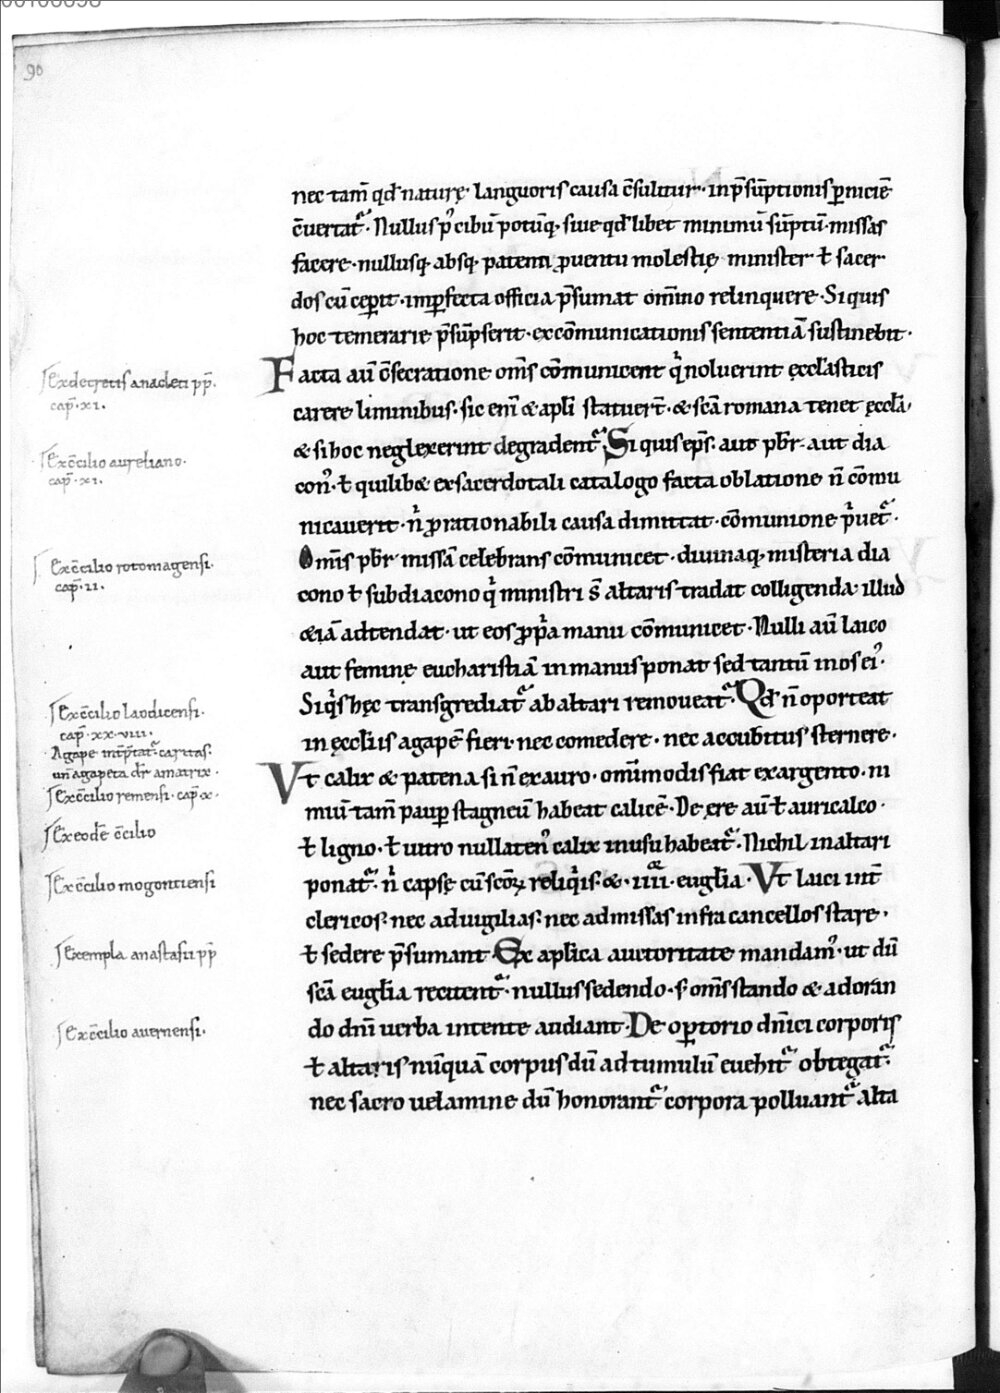 90
nec tam̄ qđ naturę languoris causa c̄sulitur· in p̄sūptionis ꝑniciē
c̄vertat᷑· Nullus pꝰ cibū potūq; siue qđlibet minimū sūptū missas
facere· nullusq; absq; patenti ꝓuentu molestię minister ł sacer
dos cū ceperit· imꝑfecta officia p̄sumat om̄ino relinquere· Siquis
hoc temerarie p̄sūpserit· excōmunicationis sententiā sustinebit·
Facta aū c̄secratione om̄s cōmunicent qͥ noluerint ęccłasticis
carere liminibus· sic eni᷒ & apłi statuer̄t· & sc̄a romana tenet ęccła·
& si hoc neglexerint degradent᷑· Si quis ep̄s· aut pb̄r· aut dia
con᷒· ł quilib& ex sacerdotali catalogo facta oblatione n̄ cōmu
nicauerit· nͥ ꝓ rationabili causa dimittat· cōmunione pͥuet᷑·
Om̄is pb̄r missā celebrans cōmunicet· diuinaq; misteria dia
cono ł subdiacono qͥ ministri s̄ altaris tradat colligenda illud
&iā adtendat· ut eos ꝓpͥa manu cōmunicet· Nulli aū laico
aut femine eucharistiā in manus ponat sed tantū in os eiꝰ·
Siqͥs hęc transgrediat᷑ ab altari remoueat᷑· Qđ n̄ oporteat
in ęccłiis agapē fieri· nec comedere· nec accubitus sternere·
Vt calix & patena si n̄ ex auro· om̄imodis fiat ex argento· ni
miū tam̄ pauꝑ stagneū habeat calicē· De ęre aū ł auricalco·
ł ligno· ł uitro nullatenꝰ calix in usu habeat᷑· Nichil in altari
ponat᷑· nͥ capsę cū sc̄oꝝ reliqͥis· & ·iiii· eugłia· Vt laici int̄
clericos· nec ad uigilias· nec ad missas infra cancellos stare·
ł sedere p̄sumant· Ex apłica auctoritate mandamꝰ· ut dū
sc̄a eugłia recitent᷑· nullus sedendo· s; om̄s stando & adoran
do dn̄i uerba intente audiant· De oꝑtorio dn̄ici corporis
ł altaris nūquā corpus dū ad tumulū euehit᷑ obtegat᷑·
nec sacro uelamine dū honorant᷑ corpora polluant᷑ alta
Ex decretis anacleti pp̄·
cap̄· xi·
Ex c̄cilio aurelιano·
cap̄· xi·
Ex c̄cilio rotomagensi·
cap̄· ii·
Ex c̄cilio laodicensi·
cap̄· xx·viii·
Agape int̄p̄tat᷑ caritas·
un̄ agapeta dr̄ amatrix·
Ex c̄cilio remensi· cap̄ x·
Ex eodē c̄cilio
Ex c̄cilio mogontiensi
Exempla anastasii pp̄
Ex c̄cilio auernensi·